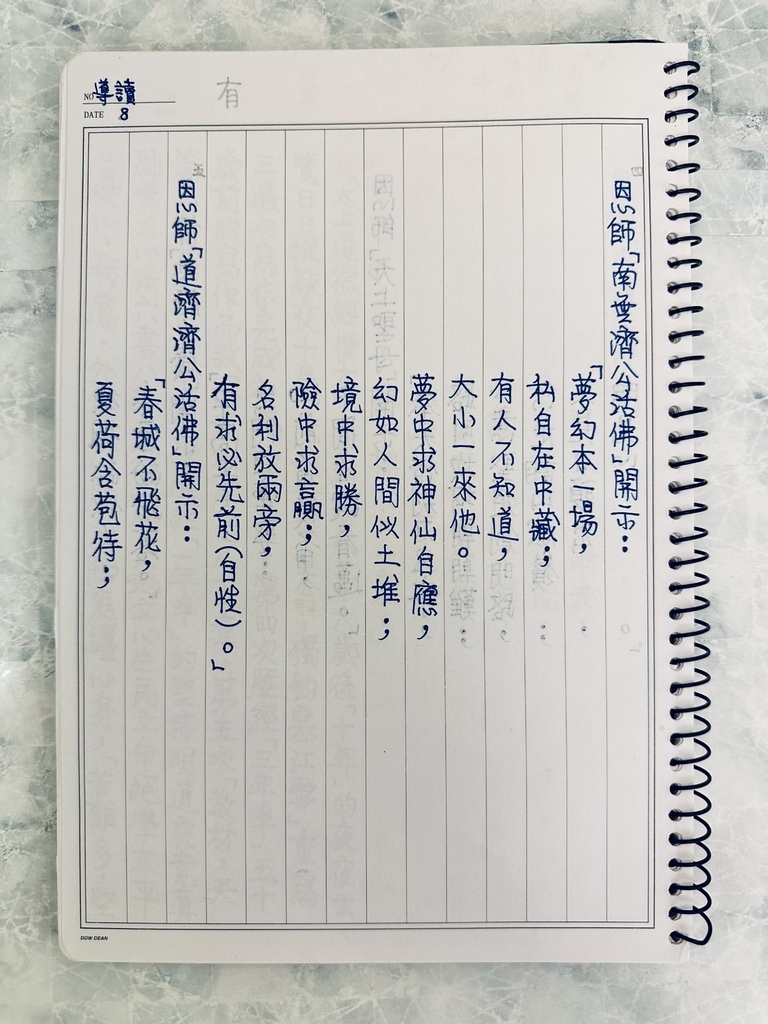 NO 導讀
DATE 8
有
四
恩師「南無濟公活佛」開示：
「夢幻本一場，
私自在中藏；
有人不知道，
大小一來他。
夢中求神仙自應，
幻如人間似土堆；
境中求勝，
險中求贏；
名利放兩旁，
有求必先前（自性）。」
五
恩師「道濟濟公活佛」開示：
「春城不飛花，
夏荷含苞待；
DOW DEAN